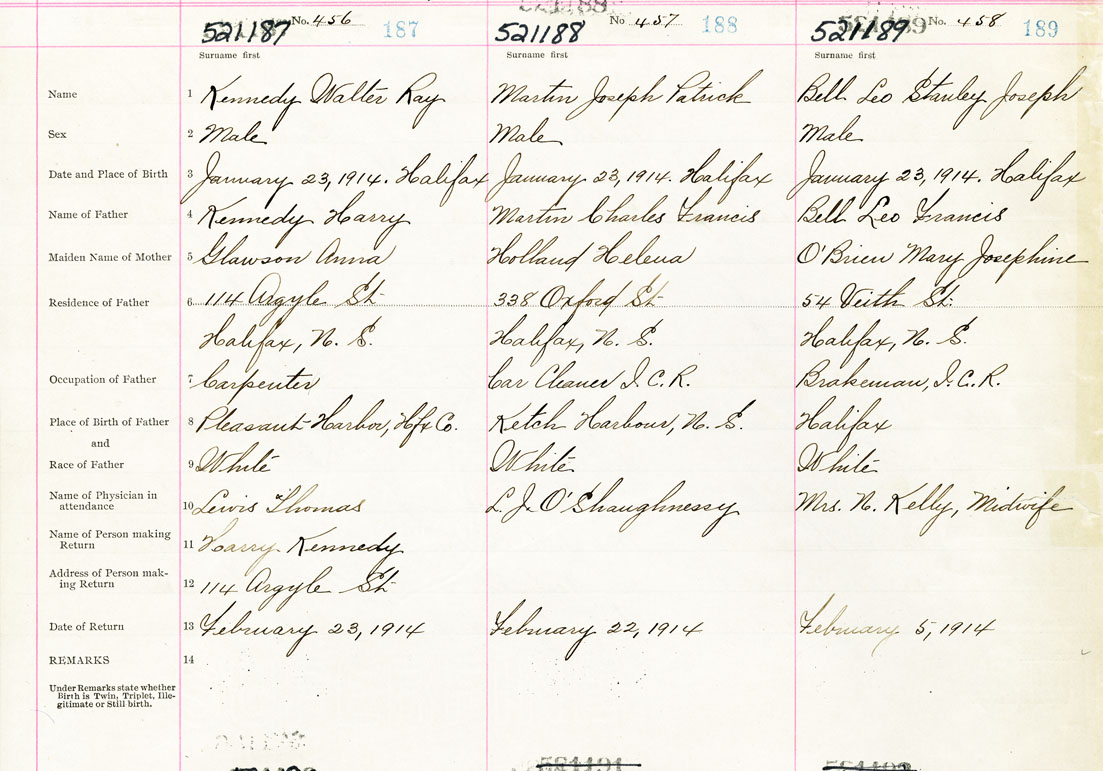 521187 No. 456 187
521188 No 457 188
521189 No. 458 189
Surname first Surname first Surname first
Name 1 Kennedy Walter Ray Martin Joseph Patrick Bell Leo Stanley Joseph
Sex 2 Male Male Male
Date and Place of Birth 3 January 23, 1914. Halifax January 23, 1914. Halifax January 23, 1914. Halifax
Name of Father 4 Kennedy Harry Martin Charles Francis Bell Leo Francis
Maiden Name of Mother 5 Glawson Anna Holland Helena O'Brien Mary Josephine
Residence of Father 6 114 Argyle St. 338 Oxford St. 54 Veith St.
Halifax, N. S. Halifax, N. S. Halifax, N. S.
Occupation of Father 7 Carpenter Car Cleaner I.C.R. Brakeman, I.C.R.
Place of Birth of Father 8 Pleasant Harbor, Hfx Co. Ketch Harbour, N. S. Halifax
and
Race of Father 9 White White White
Name of Physician in
attendance 10 Lewis Thomas L. J. O'Shaughnessy Mrs. N. Kelly, Midwife
Name of Person making
Return 11 Harry Kennedy
Address of Person mak-
ing Return 12 114 Argyle St.
Date of Return 13 February 23, 1914 February 22, 1914 February 5, 1914
REMARKS 14
Under Remarks state whether
Birth is Twin, Triplet, Ille-
gitimate or Still birth.